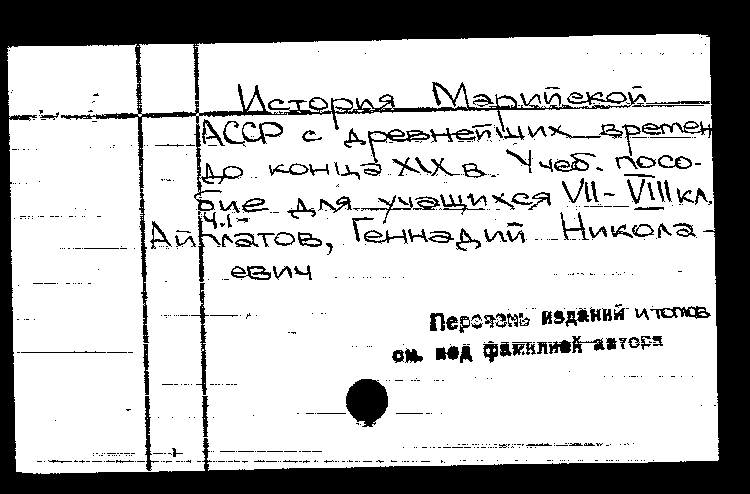 История Марийской
АССР с древнейших времен
до конца XIX в. Учеб. посо-
бие для учащихся VII-VIII кл.
Ч.1-
Айплатов, Геннадий Никола-
евич
Перечень изданий и томов
см. под фамилией автора